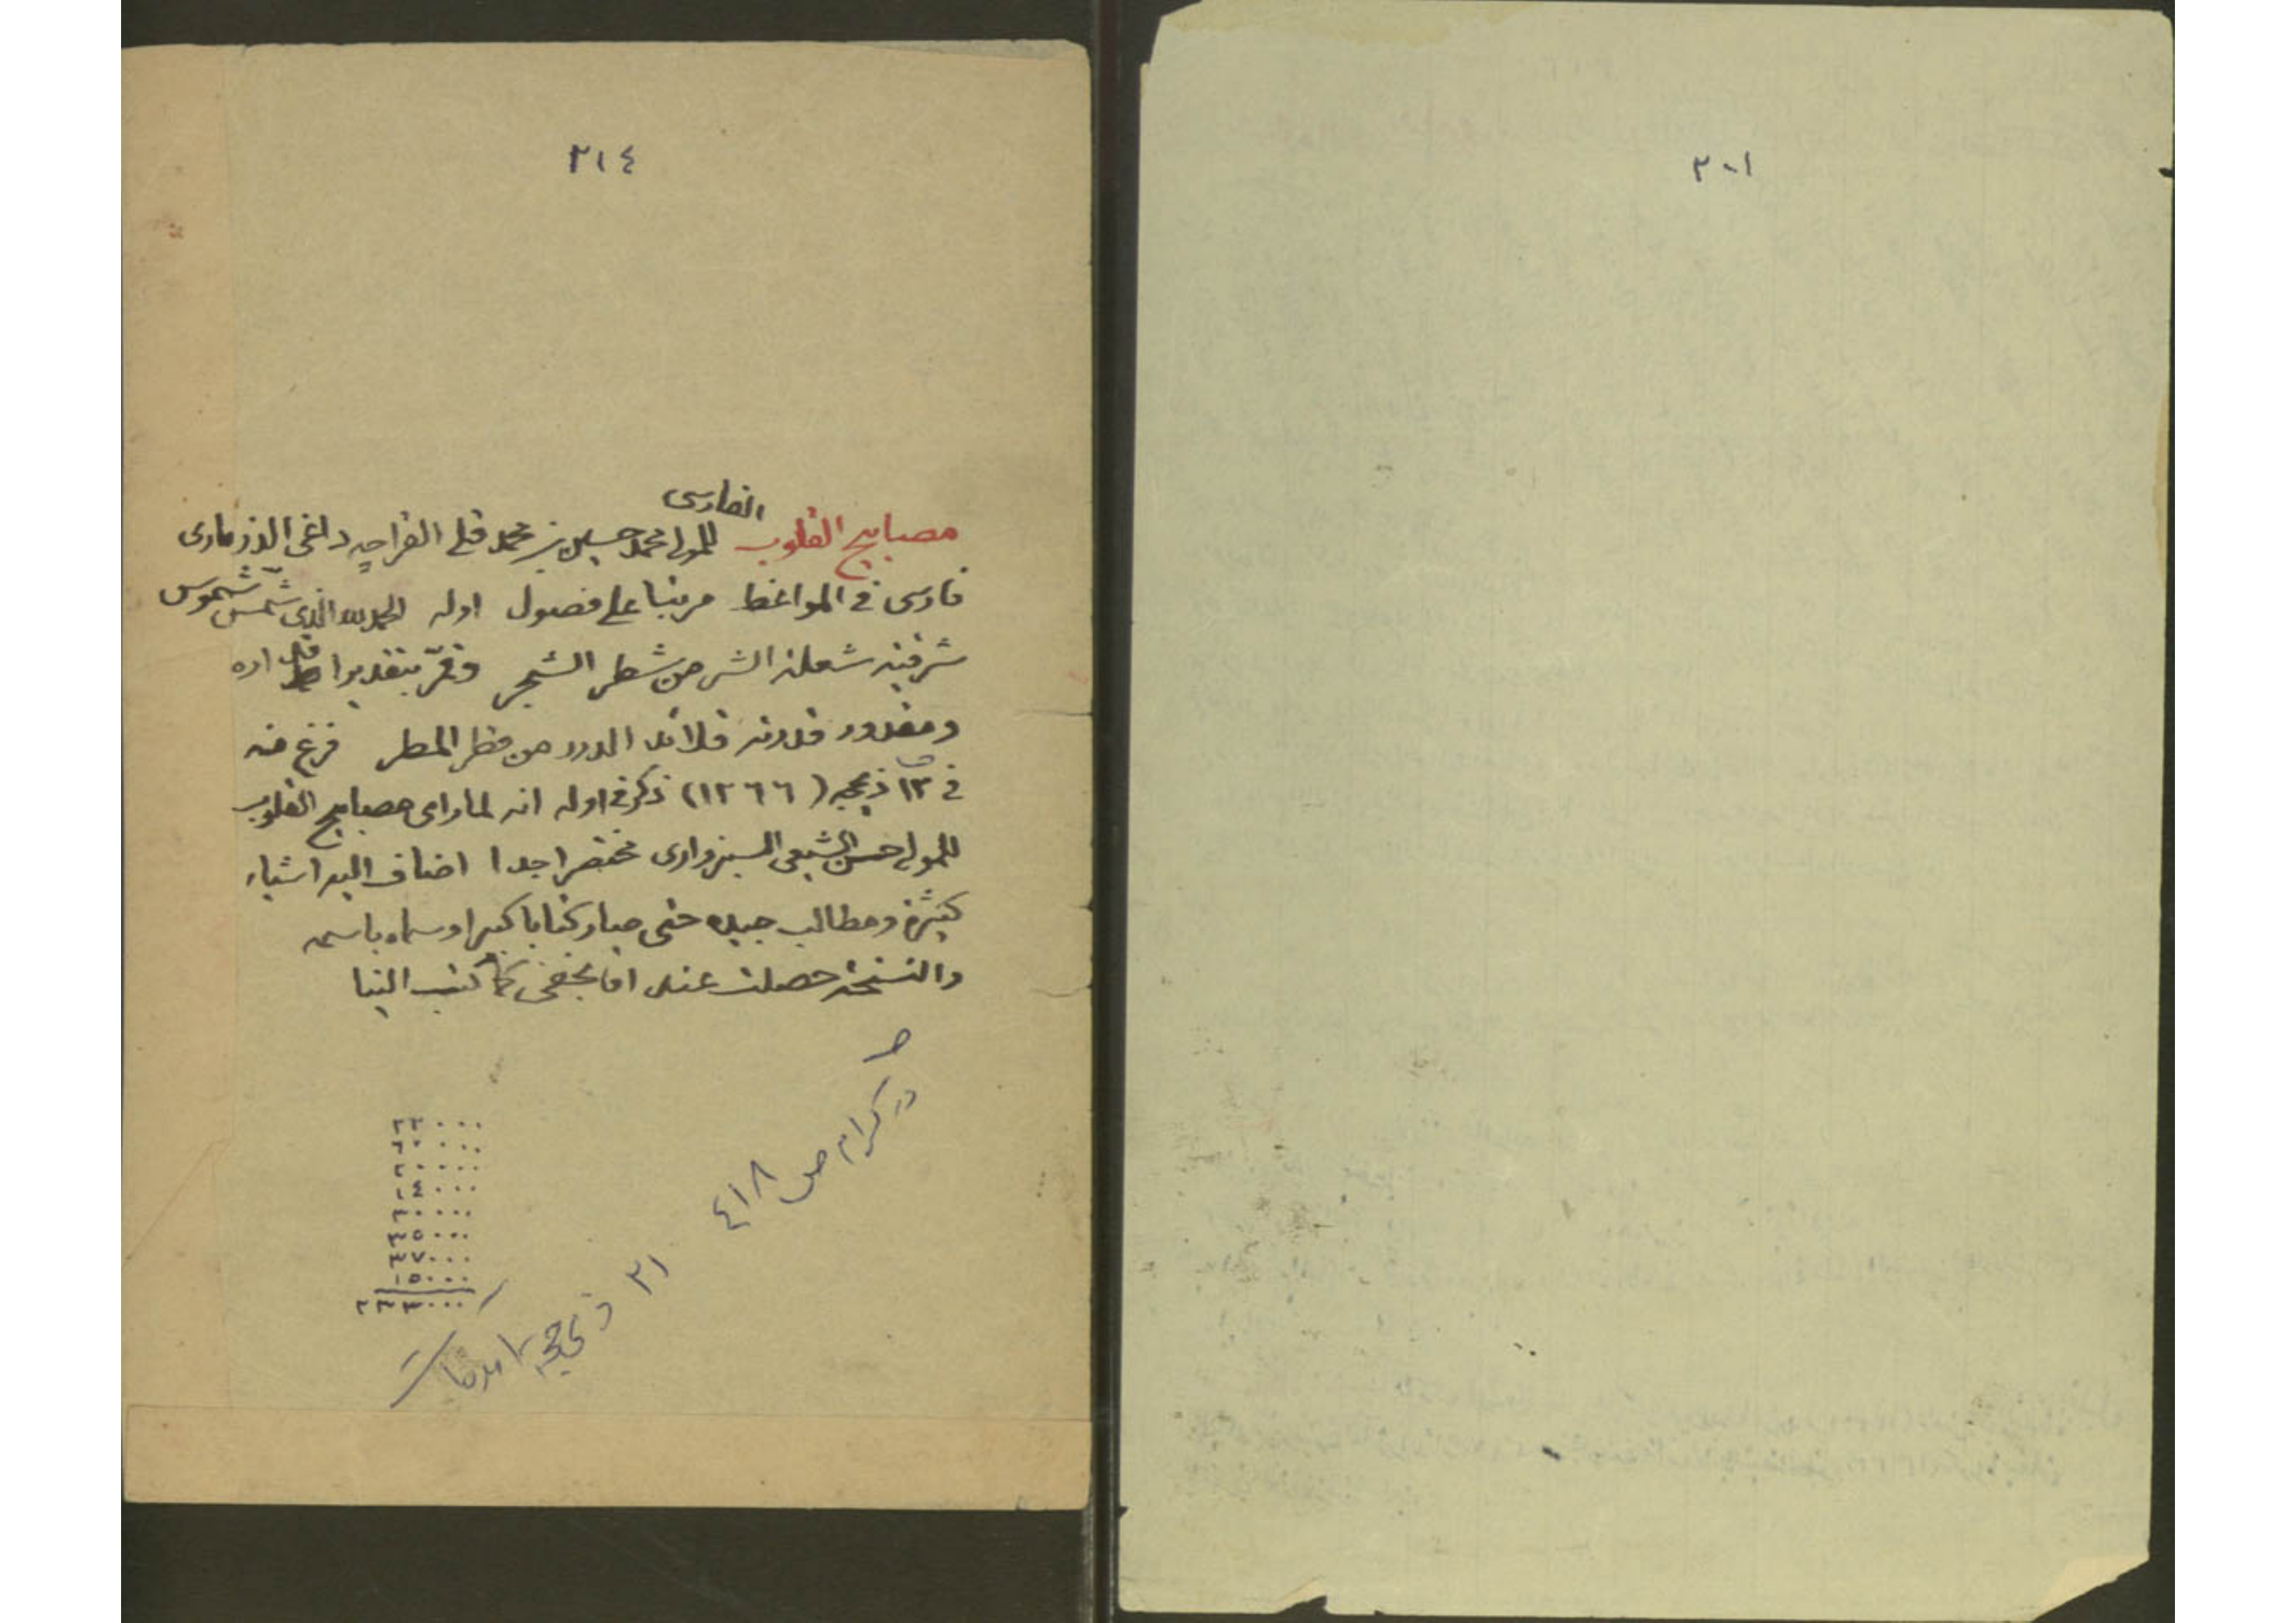 ٣٠١
٣١٤
الفارسى
مصابيح القلوب للمولى محمد حسين بن محمد قلى القراجه داغى الدزمارى
فارسى فى المواعظ مرتبا على فصول اوله الحمد لله الذى شمّس شموس
شرقيه شعلة الشرر من شطر الشجر وقمّر بتقدير ارادته
ومقدور قدرته قلائد الدرر من قطر المطر فرغ منه
فى ١٣ ذيحجه (١٢٦٦) ذكر فى اوله انه لما راى مصابيح القلوب
للمولى حسن الشيعى السبزوارى مختصرا جدا اضاف اليه اشياء
كثيرة ومطالب جيده حتى صار كتابا كبيرا وسماه باسمه
والنسخة حصلت عند اقا نجفى كما كتب الينا
در كرام ص ٤١٨
٣١ ذيحجه آمده است
٢٢٠٠٠
٦٠٠٠٠
٢٠٠٠٠
١٤٠٠٠
٣٠٠٠٠
٣٥٠٠٠
٣٧٠٠٠
١٥٠٠٠
٢٣٣٠٠٠